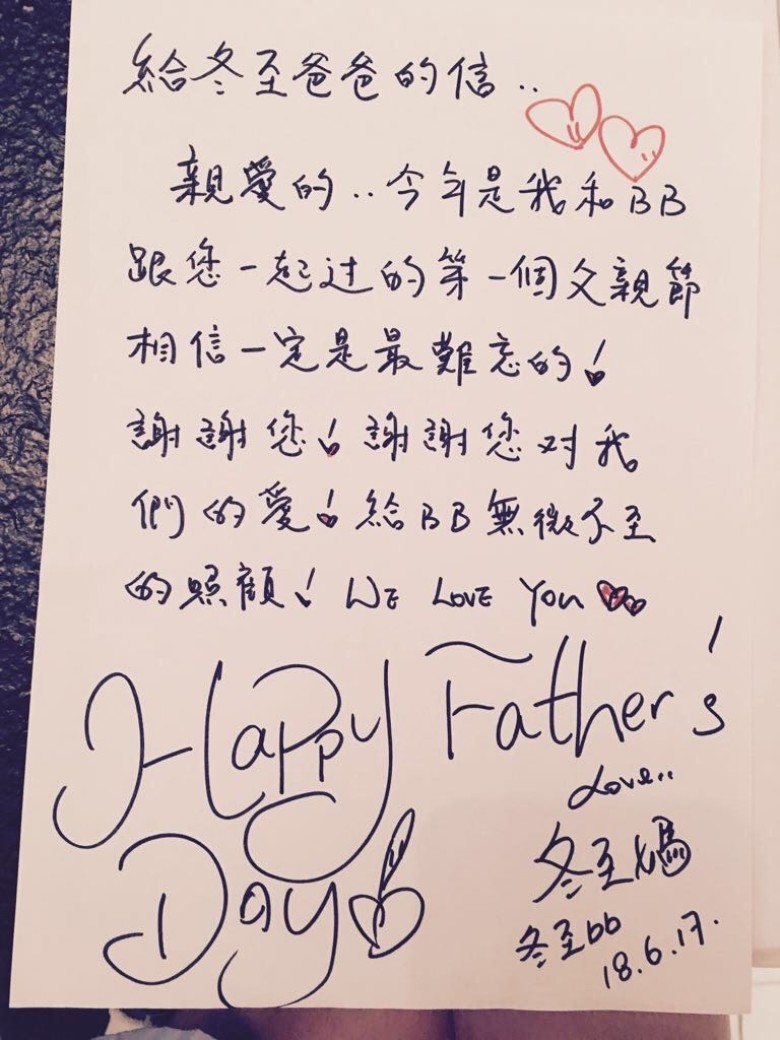 給冬至爸爸的信..
親愛的..今年是我和BB
跟您一起过的第一個父親節
相信一定是最難忘的!
謝謝您!謝謝您对我
們的愛!給BB無微不至
的照顧! WE LOVE You
Happy Father's
Love..
Day!
冬至媽
冬至bb
18.6.17.